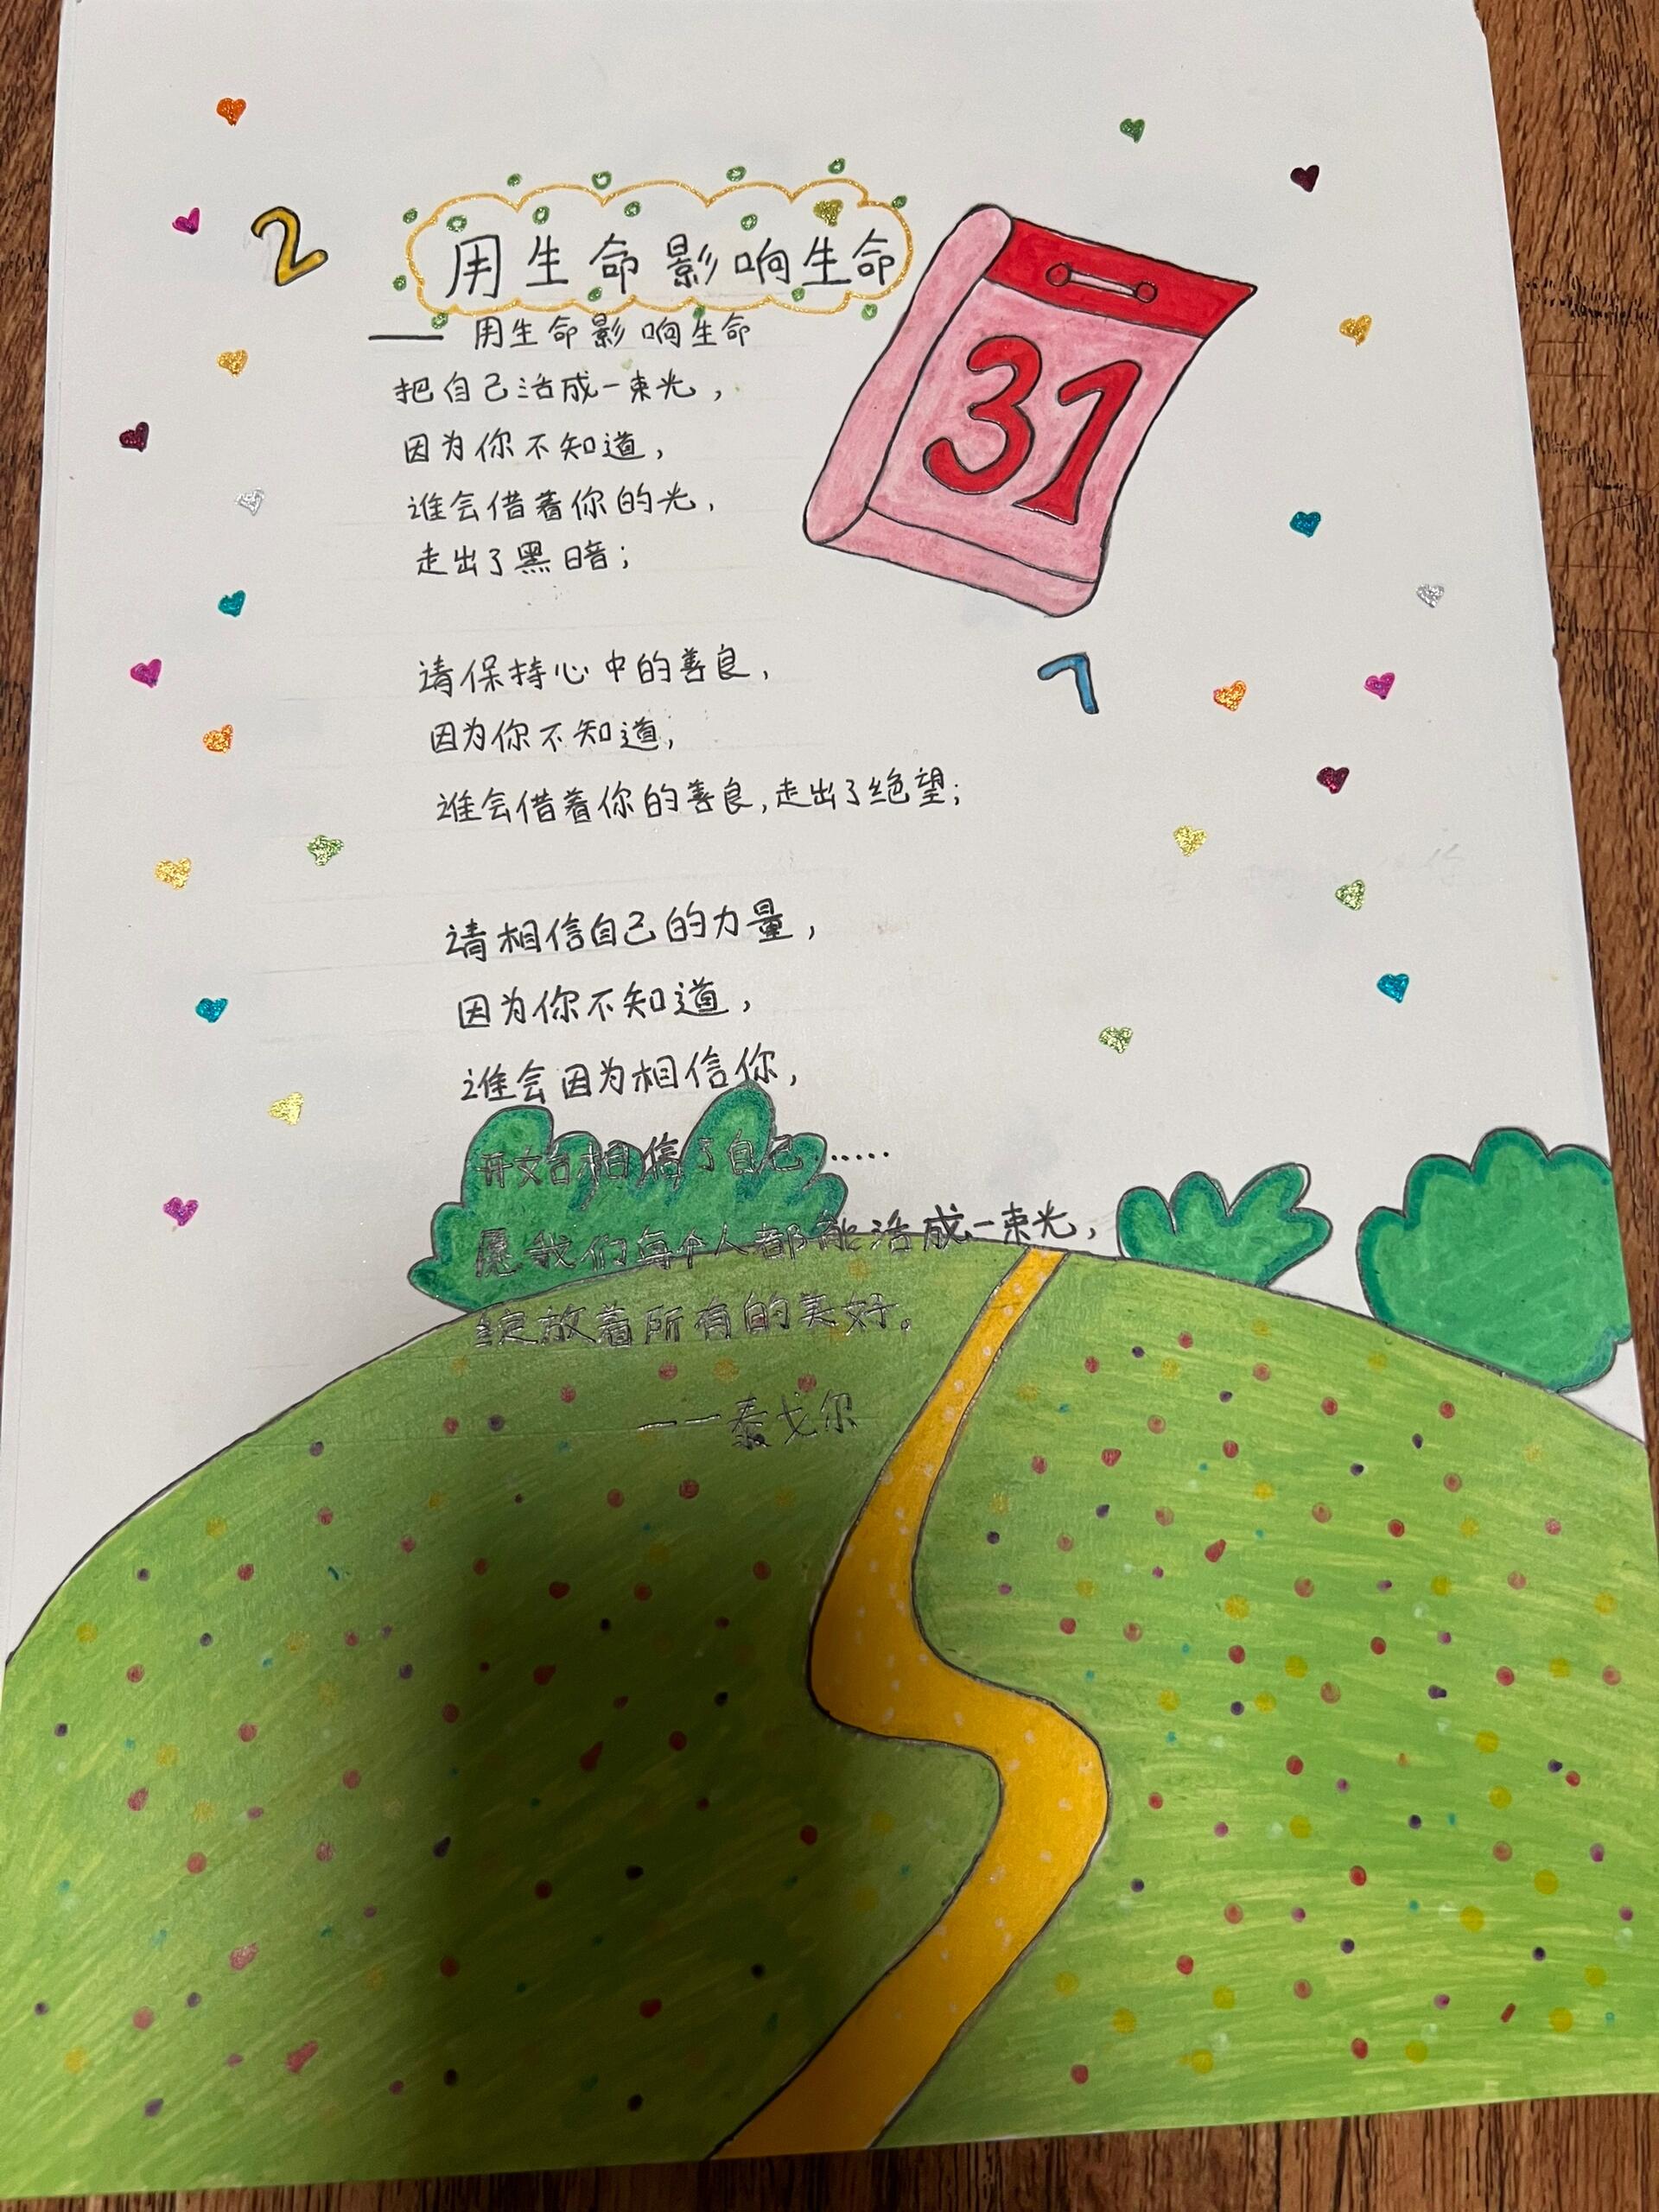 2
用生命影响生命
—— 用生命影响生命
把自己活成一束光，
因为你不知道，
谁会借着你的光，
走出了黑暗；
31
请保持心中的善良，
7
因为你不知道，
谁会借着你的善良，走出了绝望；
请相信自己的力量，
因为你不知道，
谁会因为相信你，
开始相信了自己......
愿我们每个人都能活成一束光，
绽放着所有的美好。
——泰戈尔